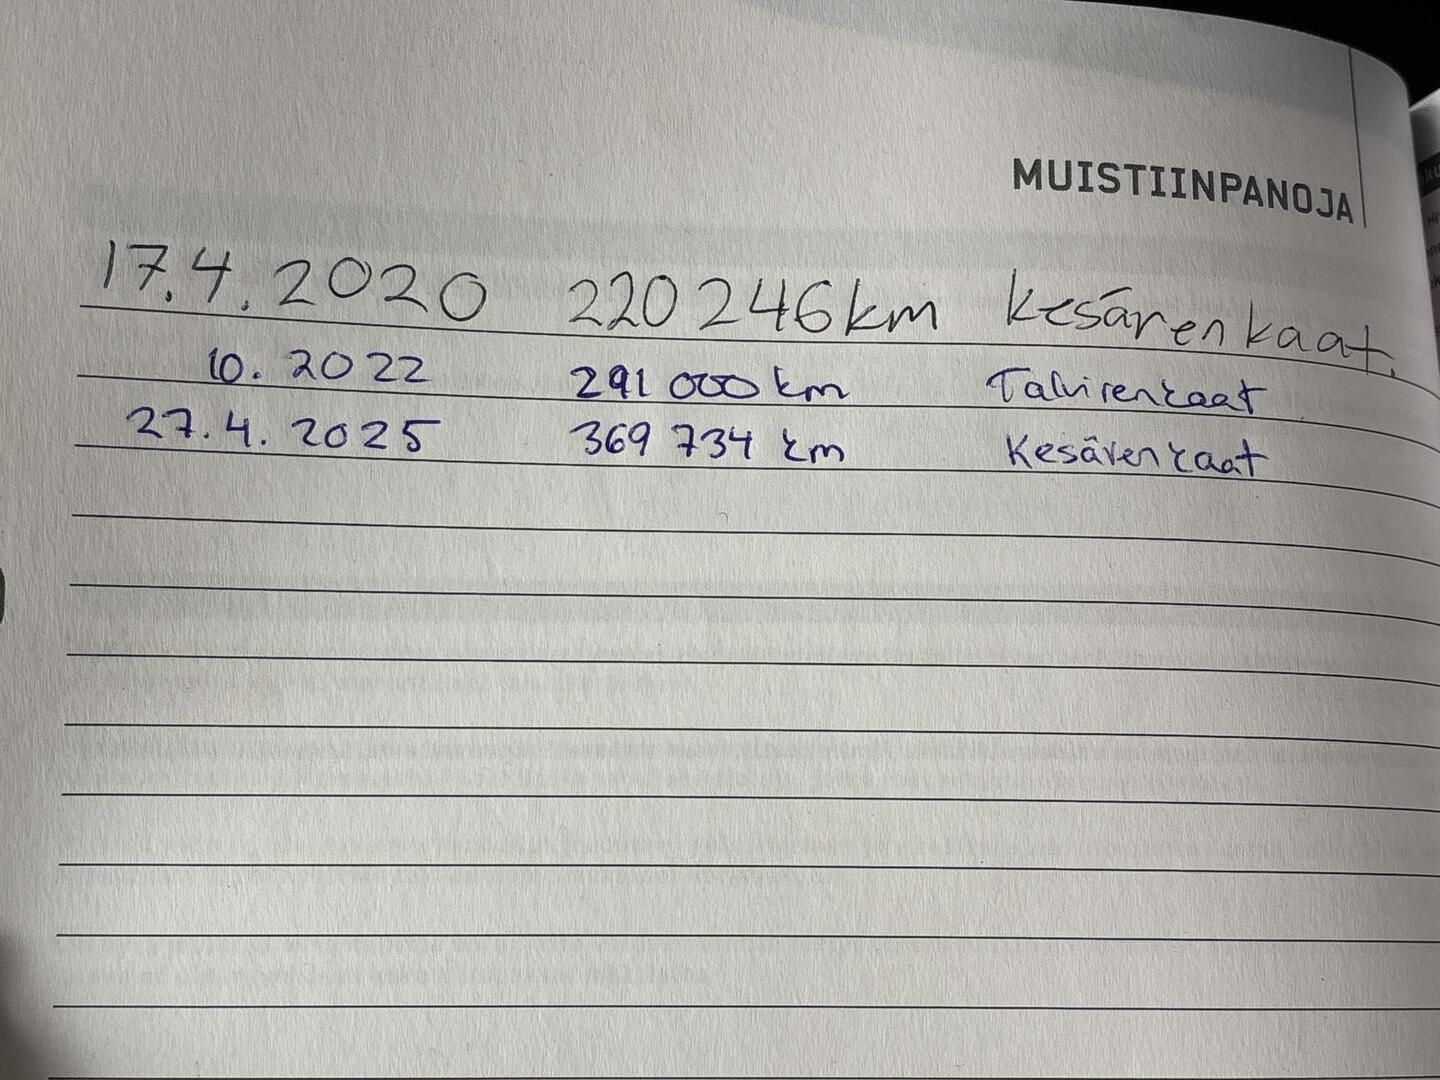 MUISTIINPANOJA
17.4.2020 220 246 km kesärenkaat.
10. 2022 291 000 km Talvirenkaat
27.4. 2025 369 734 km Kesärenkaat